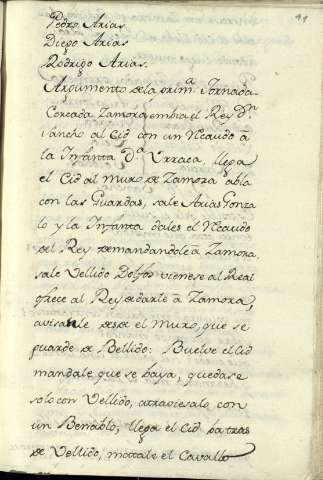 91
Pedro Arias
Diego Arias
Rodrigo Arias.
Argumento de la prim.ª Jornada
Cercada Zamora, embia el Rey D.n
Sancho al Cid con un Recaudo â
la Infanta D.ª Urraca, llega
el Cid al muro de Zamora abla
con las Guardas, sale Arias Gonza
lo y la Infanta dales el Recaudo
del Rey demandandole â Zamora,
sale Vellido Dolfos vienese al Real
ofrece al Rey de darle â Zamora,
avisanle desde el Muro, que se
guarde de Bellido: Buelve el Cid
mandale que se baya, quedase
solo con Vellido, atraviesalo con
un Benablo, llega el Cid ba tras
de Vellido, mottale el Cavallo